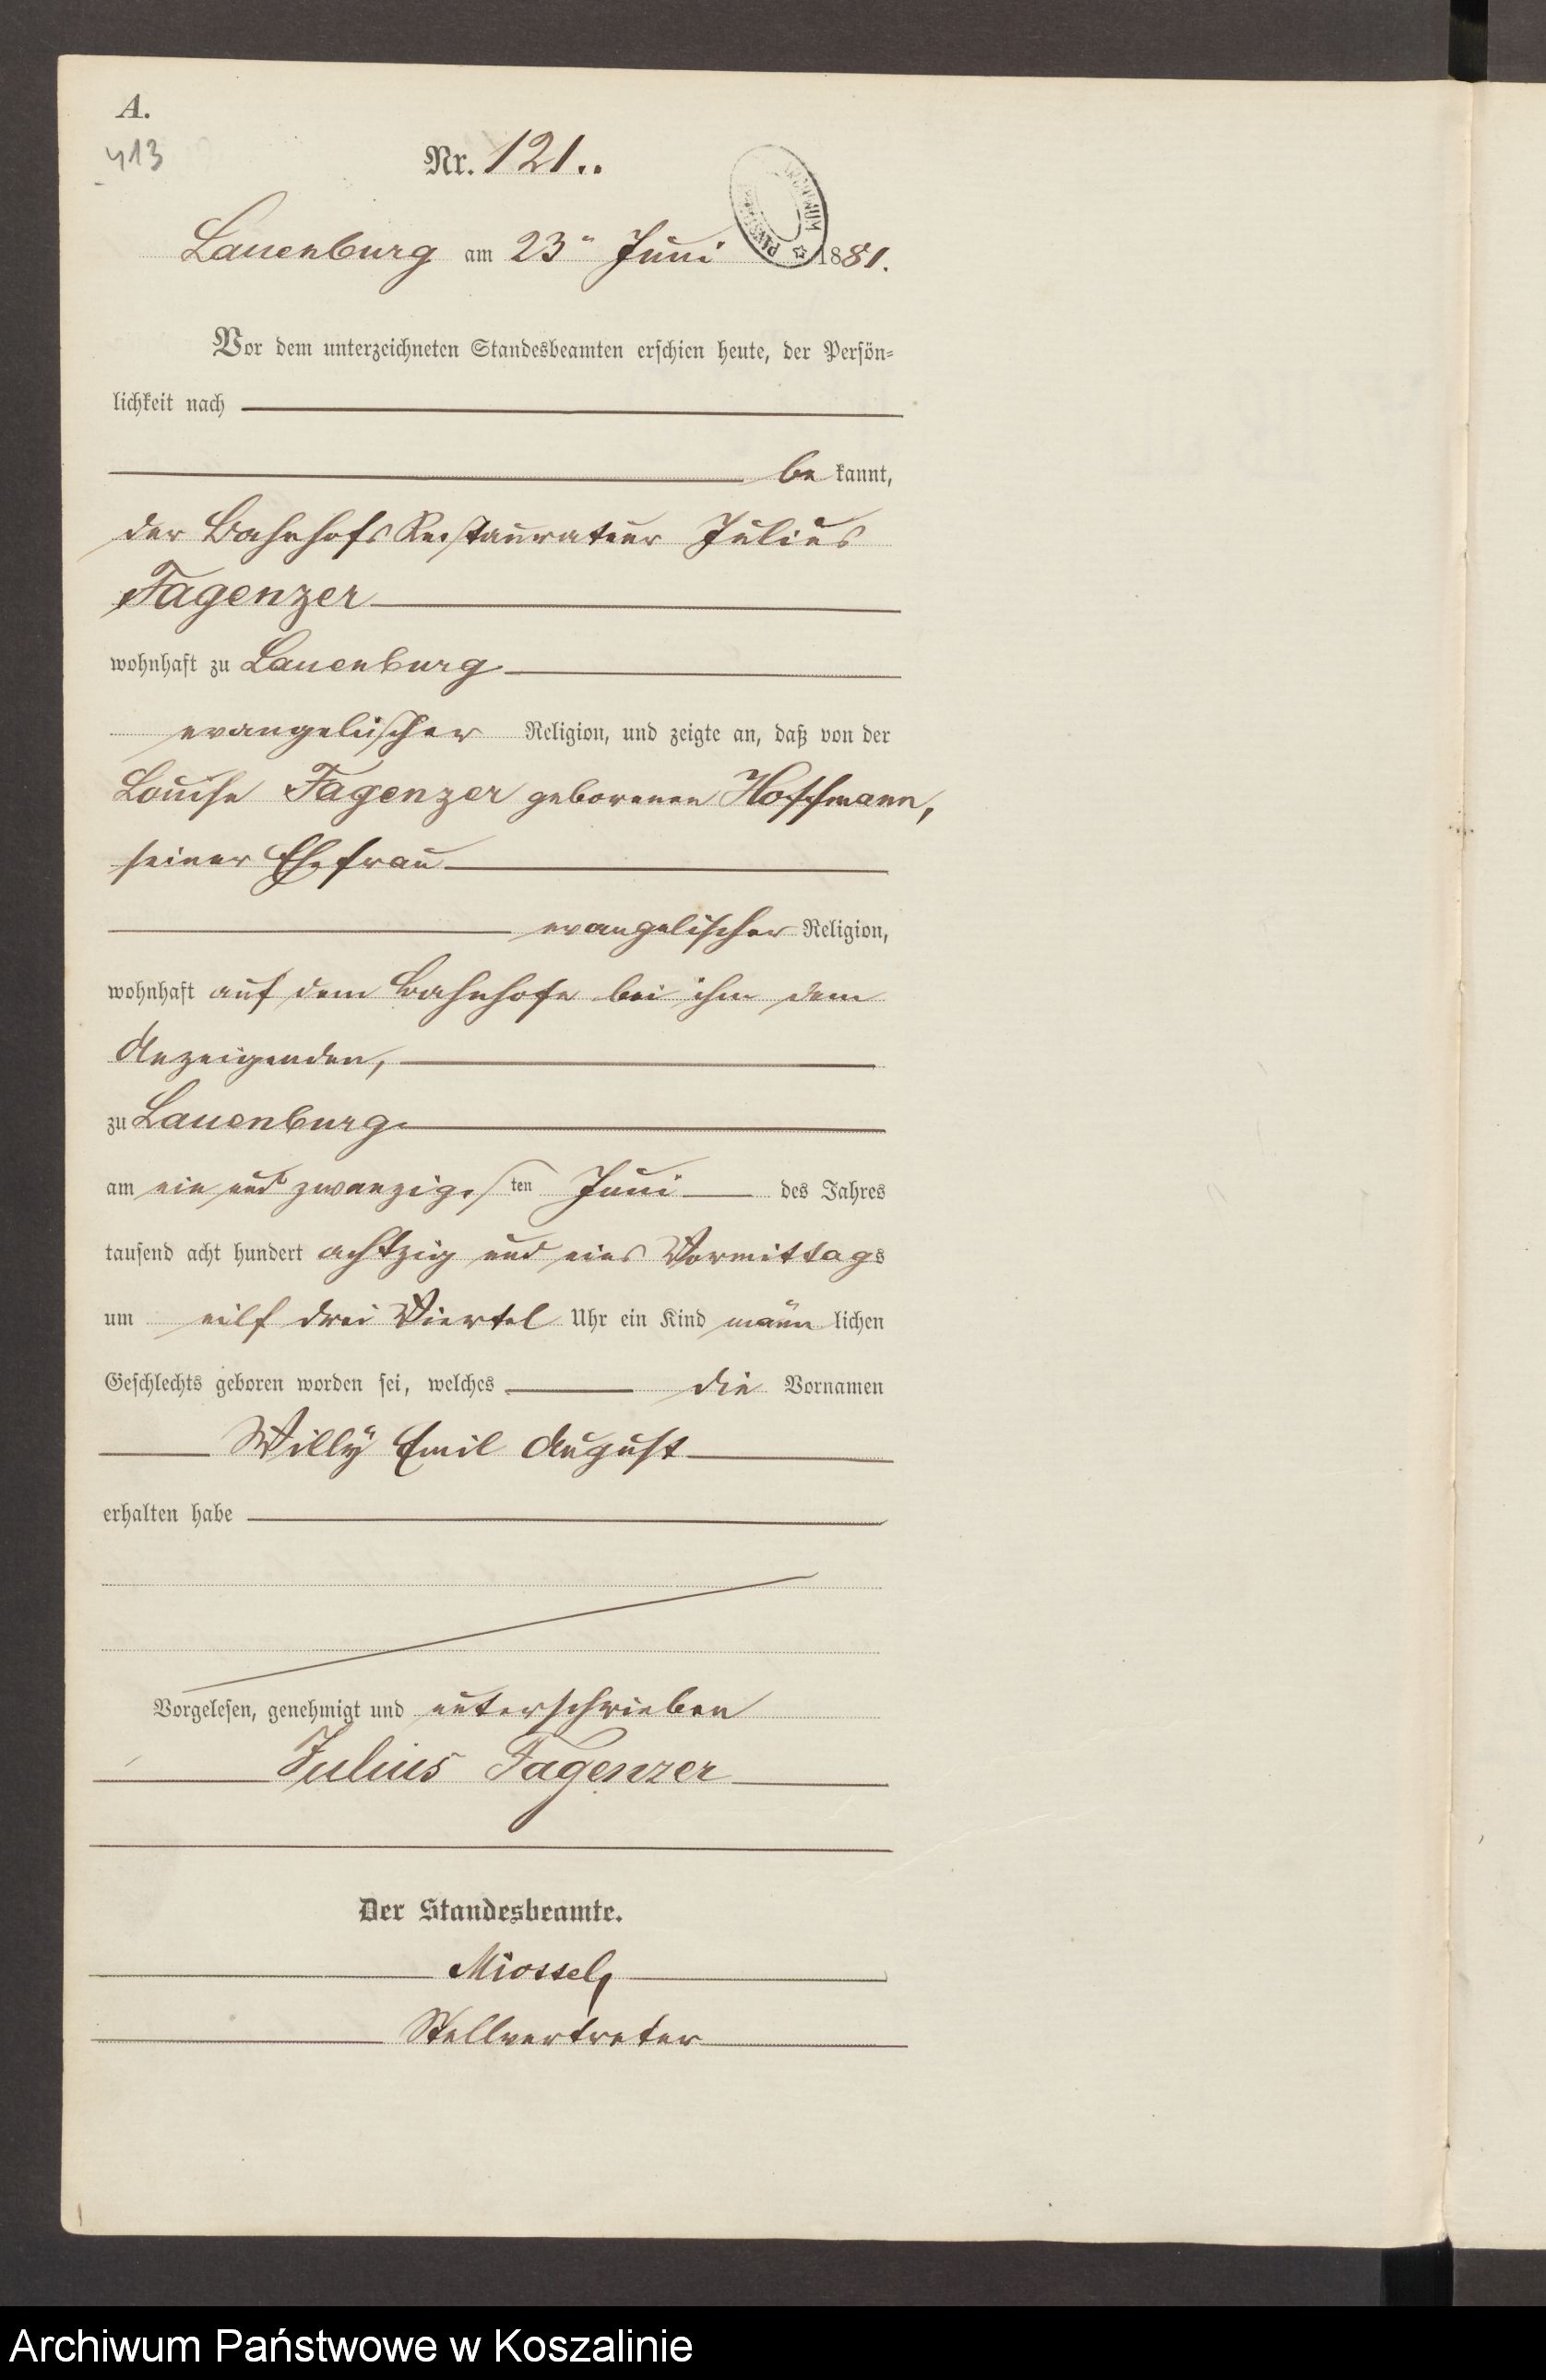 A.
413
Nr. 121..
Lauenburg am 23ⁿ Juni 1881.
Vor dem unterzeichneten Standesbeamten erschien heute, der Persön=
lichkeit nach
be kannt,
der Bahnhofs Restaurateur Julius
Fagenzer
wohnhaft zu Lauenburg
evangelischer Religion, und zeigte an, daß von der
Louise Fagenzer geborenen Hoffmann,
seiner Ehefrau
evangelischer Religion,
wohnhaft auf dem Bahnhofe bei ihm dem
Anzeigenden,
zu Lauenburg
am ein und zwanzigs ten Juni des Jahres
tausend acht hundert achtzig und eins Vormittags
um eilf drei Viertel Uhr ein Kind männ lichen
Geschlechts geboren worden sei, welches die Vornamen
Willy Emil August
erhalten habe
Vorgelesen, genehmigt und unterschrieben
Julius Fagenzer
Der Standesbeamte.
Miossel,
Stellvertreter
Archiwum Państwowe w Koszalinie